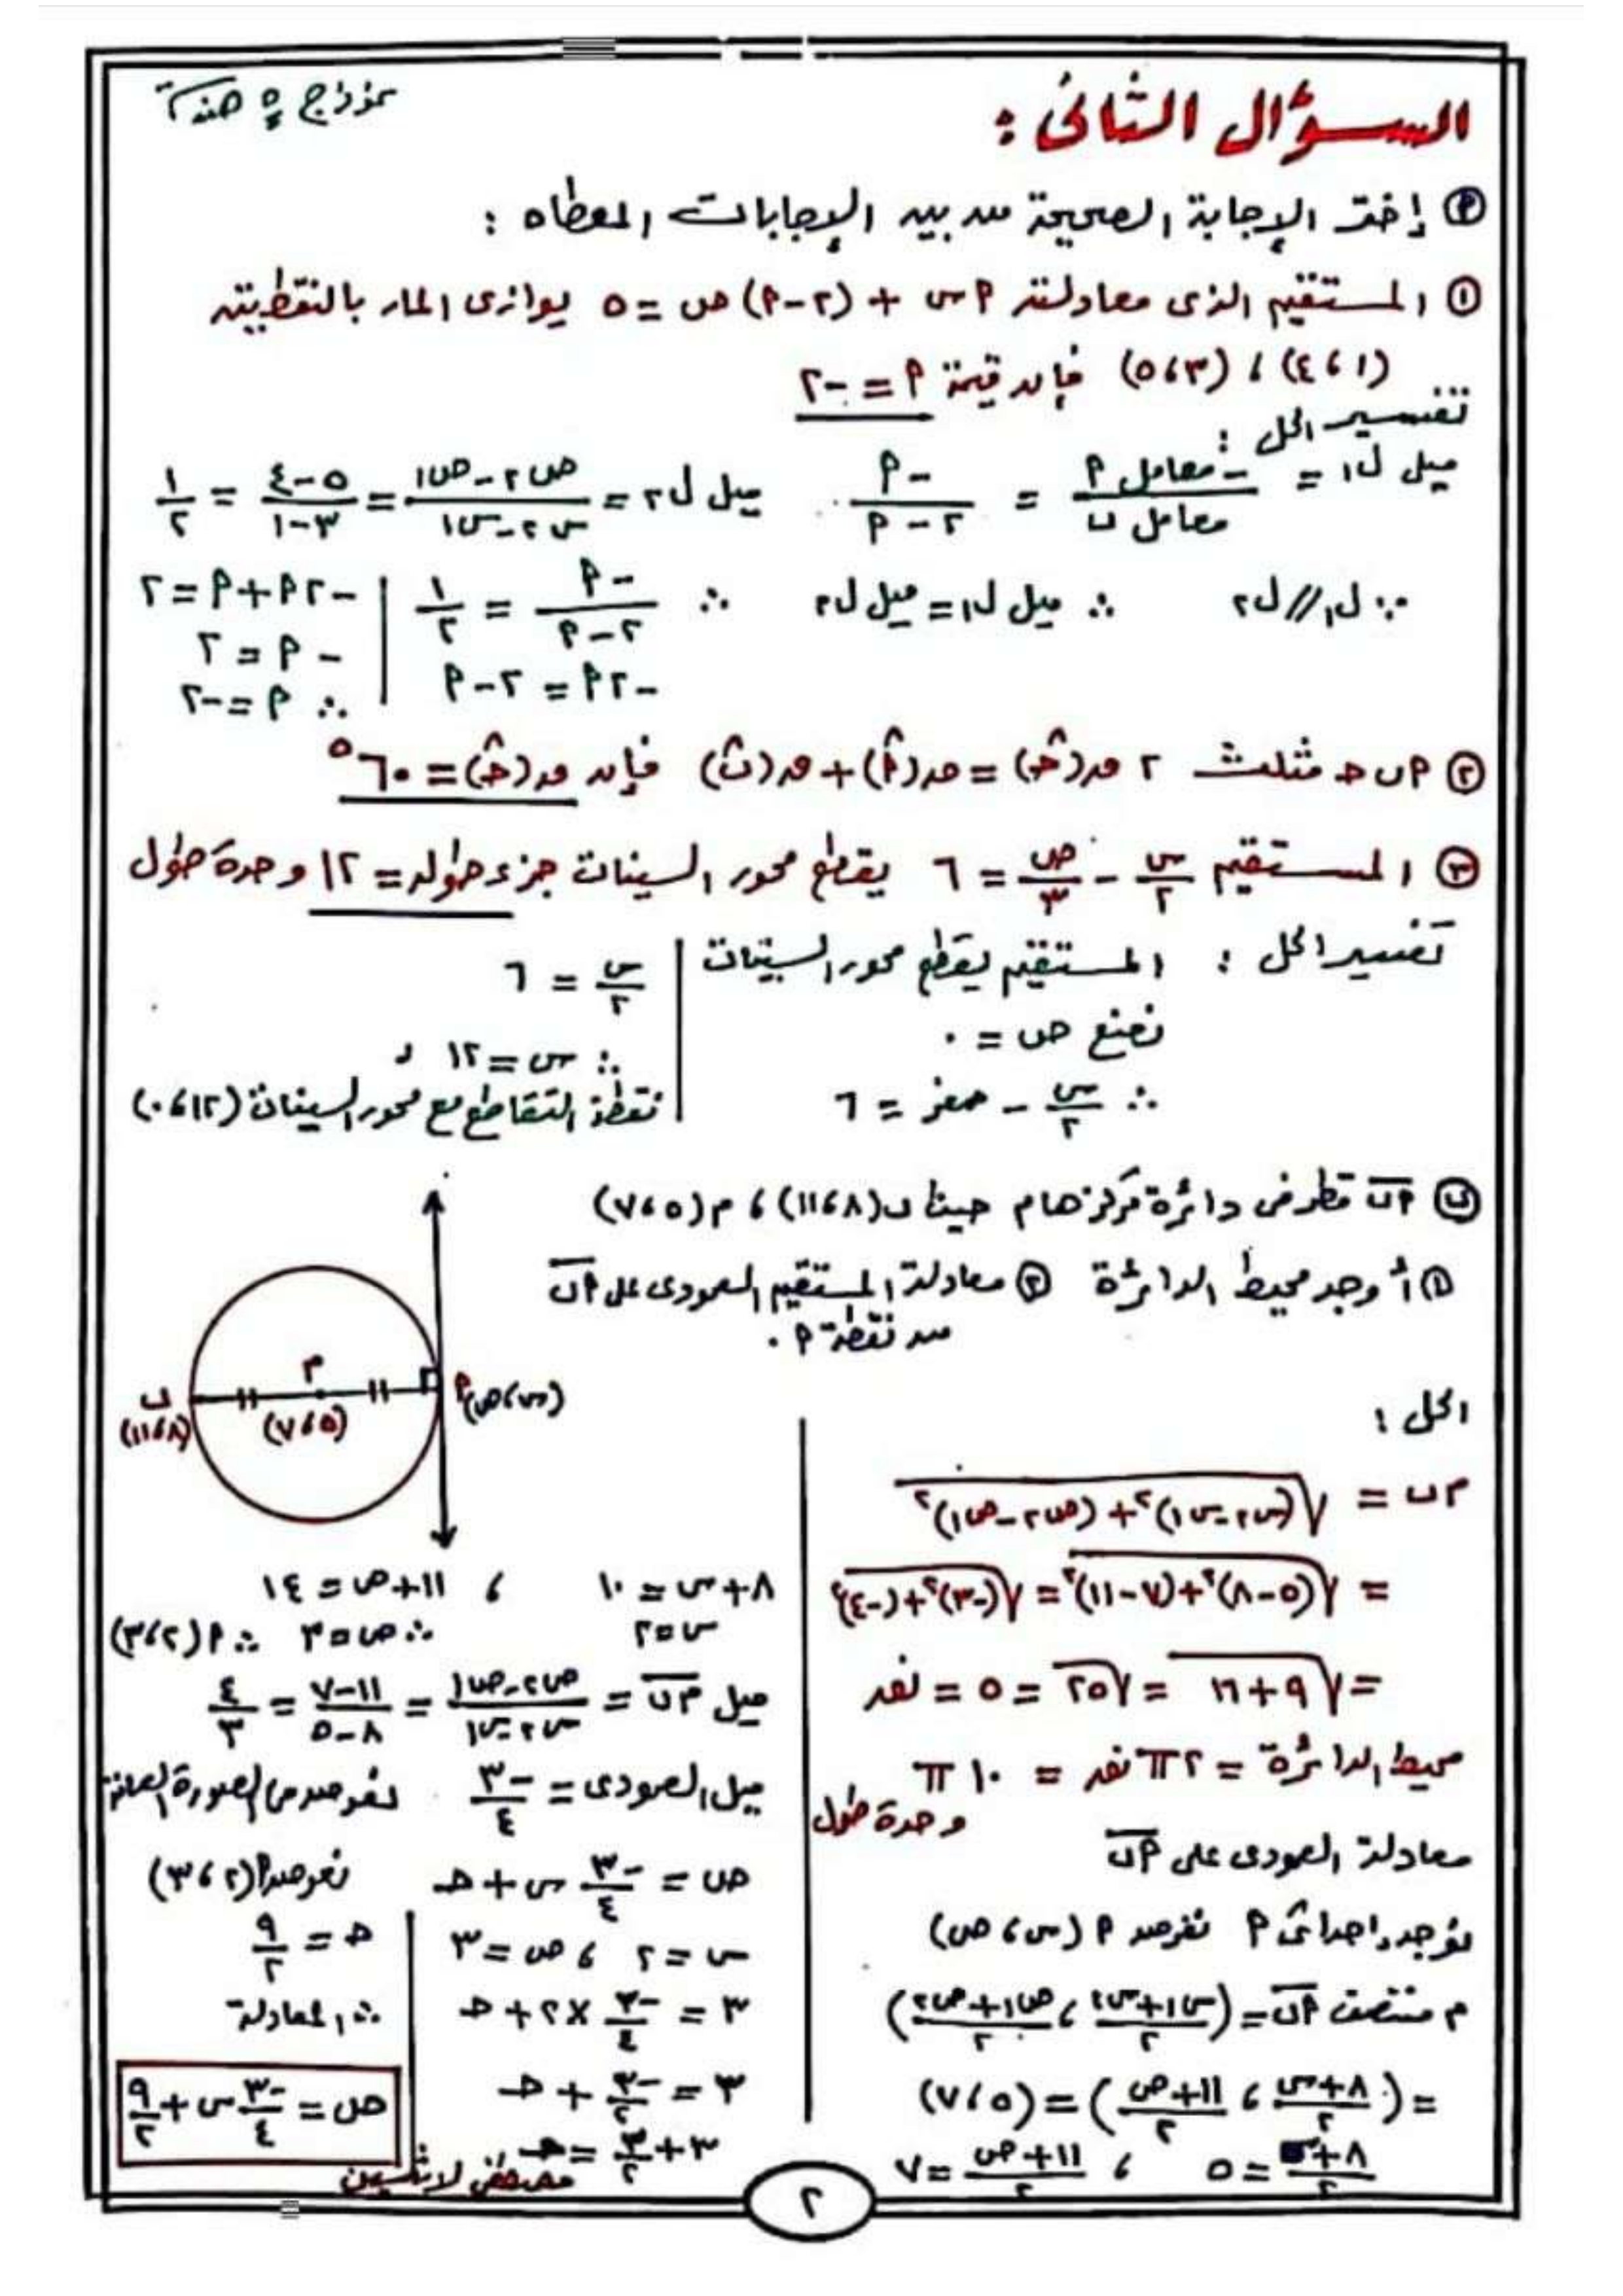 نموذج ٥ هندسة
السؤال الثانى :
(أ) إختر الإجابة الصحيحة من بين الإجابات المعطاه :
(١) المستقيم الذى معادلته أس + (٢-أ) ص = ٥ يوازى المار بالنقطتين
(١، ٤) ، (٣، ٥) فإن قيمة أ = -٢
تفسير الحل :
ميل ل١ = -معامل أ / معامل ب = -أ / ٢-أ ميل ل٢ = ص٢-ص١ / س٢-س١ = ٥-٤ / ٣-١ = ١/٢
∵ ل١ // ل٢ ∴ ميل ل١ = ميل ل٢ ∴ -أ / ٢-أ = ١/٢
-٢أ = ٢-أ
-٢أ+أ = ٢
-أ = ٢
∴ أ = -٢
(٢) أ ب ح مثلث ٢ ق(ح̂) = ق(أ̂) + ق(ب̂) فإن ق(ح̂) = ٦٠°
(٣) المستقيم س/٢ - ص/٣ = ٦ يقطع محور السينات جزء طوله = ١٢ وحدة طول
تفسير الحل : المستقيم يقطع محور السينات
نضع ص = ٠
∴ س/٢ - صفر = ٦
س/٢ = ٦
∴ س = ١٢ د
نقطة التقاطع مع محور السينات (١٢، ٠)
(ب) أب قطر فى دائرة مركزها م حيث ب (٨، ١١) ، م (٥، ٧)
(١) أوجد محيط الدائرة (٢) معادلة المستقيم العمودى على أب
من نقطة أ .
م
ب
(٨، ١١)
(٥، ٧)
أ (س، ص)
الحل :
م ب = √(س٢-س١)٢ + (ص٢-ص١)٢
= √(٥-٨)٢+(٧-١١)٢ = √(-٣)٢+(-٤)٢
= √٩+١٦ = √٢٥ = ٥ = نق
محيط الدائرة = ٢ π نق = ١٠ π
وحدة طول
معادلة العمودى على أب
نوجد إحداثى أ نفرض أ (س، ص)
م منتصف أب = (س١+س٢ / ٢ ، ص١+ص٢ / ٢)
= (٨+س / ٢ ، ١١+ص / ٢) = (٥، ٧)
٨+س / ٢ = ٥ ، ١١+ص / ٢ = ٧
٨+س = ١٠ ، ١١+ص = ١٤
س = ٢ ∴ ص = ٣ ∴ أ (٢، ٣)
ميل م ب = ص٢-ص١ / س٢-س١ = ١١-٧ / ٨-٥ = ٤/٣
ميل العمودى = -٣/٤ نعوض فى الصورة العامة
ص = -٣/٤ س + ح نعوض أ (٢، ٣)
س = ٢ ، ص = ٣
٣ = -٣/٤ × ٢ + ح
٣ = -٣/٢ + ح
٣ + ٣/٢ = ح
ح = ٩/٢
∴ المعادلة
ص = -٣/٤ س + ٩/٢
مصطفى لاشين
٢